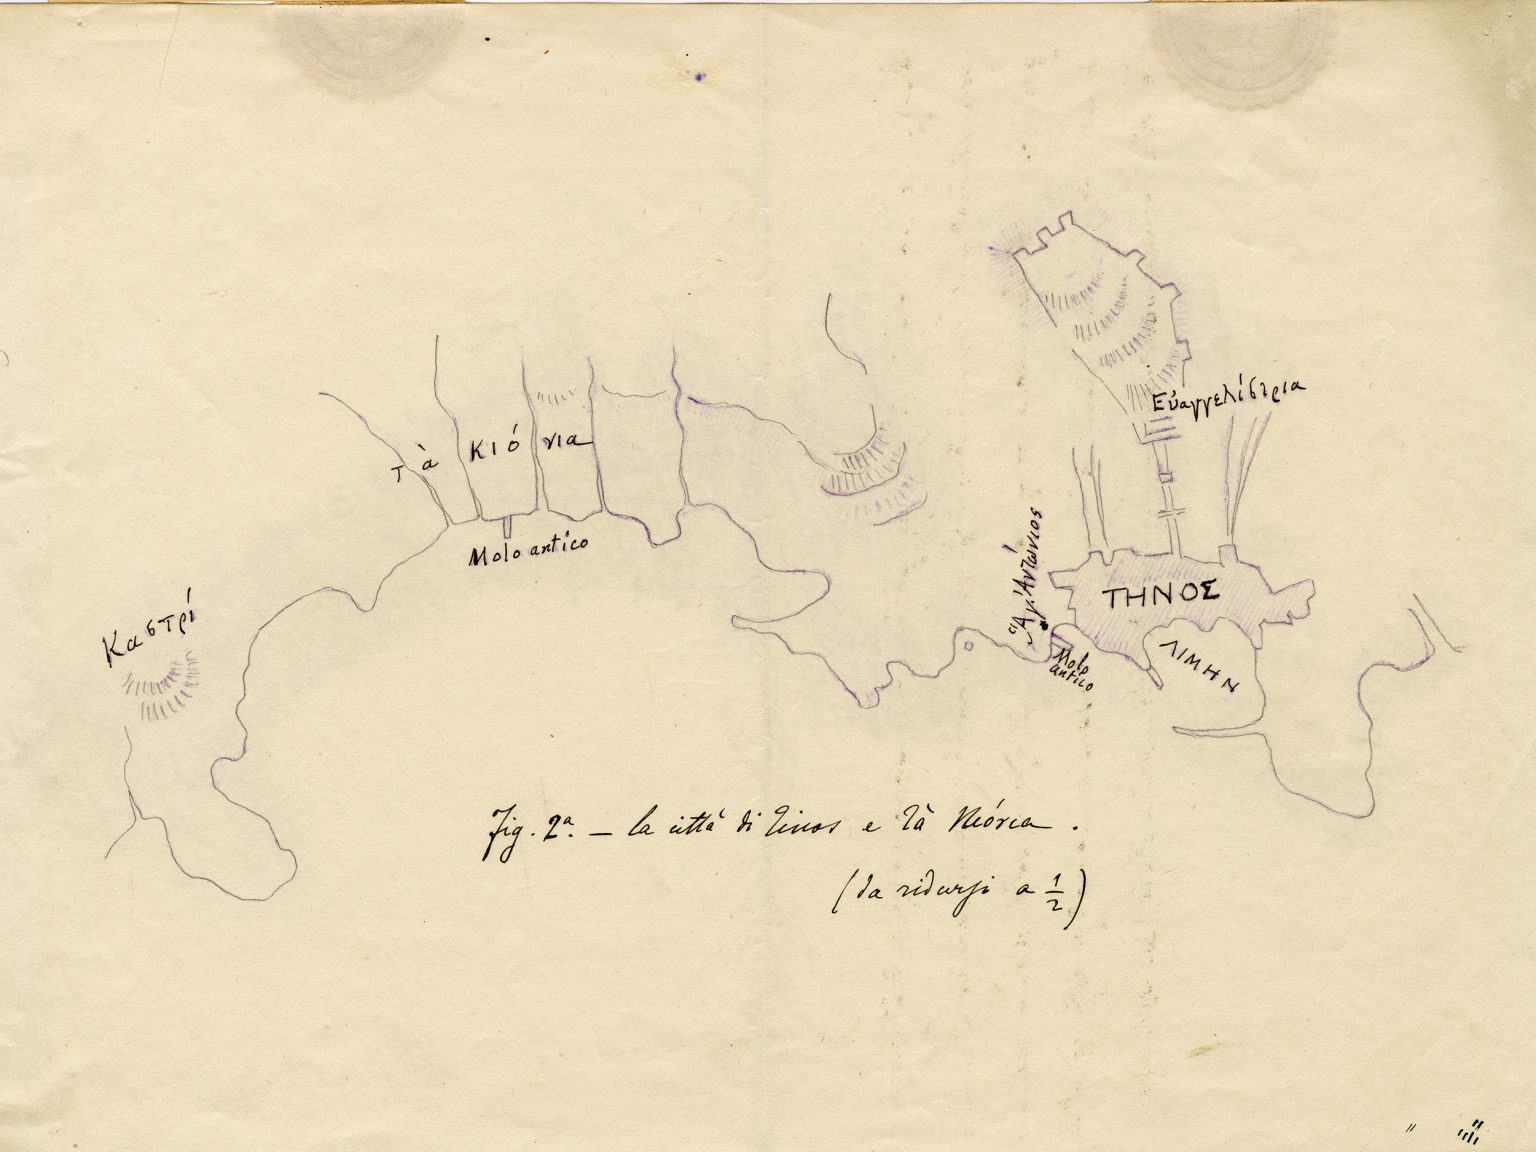 Εὐαγγελίστρια
τὰ κιόνια
Molo antico
Ἅγ. Ἀντώνιος
ΤΗΝΟΣ
Καστρί
ΛΙΜΗΝ
Molo
antico
Fig. 2ª. — la città di Tinos e Τὰ Κιόνια.
(da ridursi a 1/2)